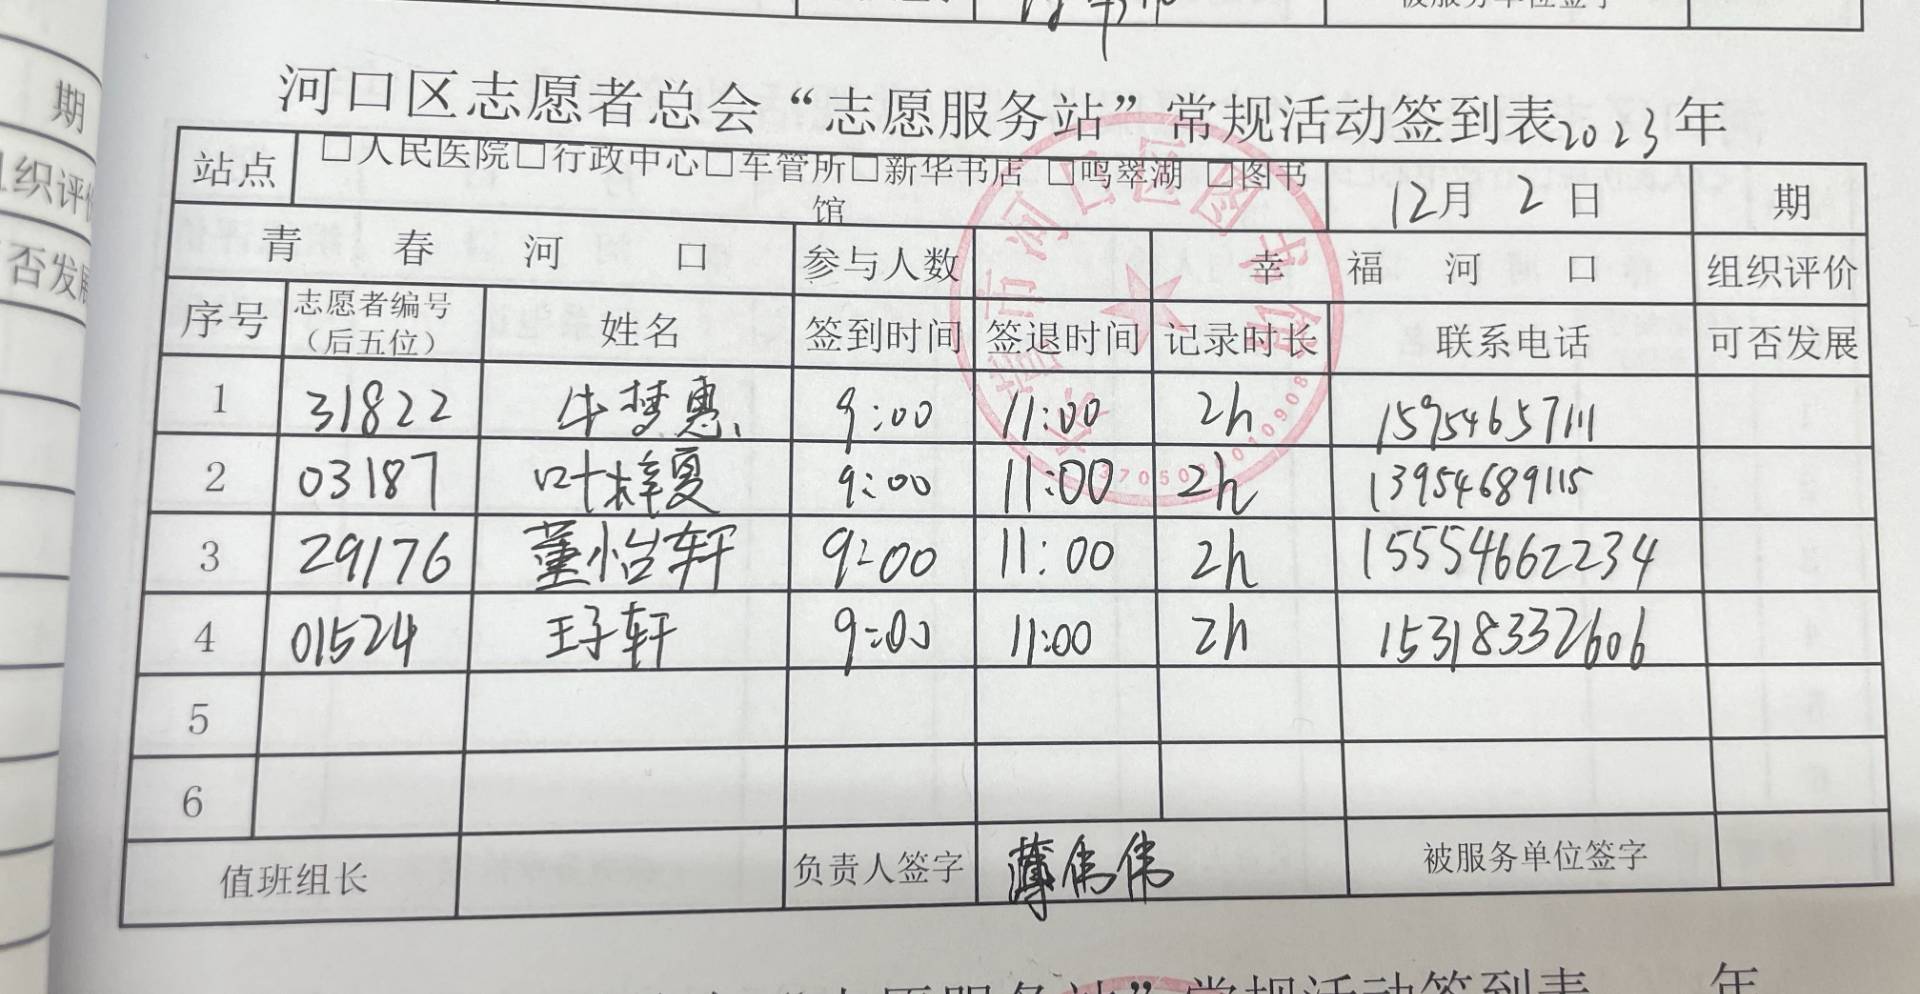 被服务单位签字
期
组织评价
可否发展
河口区志愿者总会“志愿服务站”常规活动签到表2023年
站点 □人民医院□行政中心□车管所□新华书店 □鸣翠湖 □图书馆 12月 2日 期
青春河口 参与人数 幸福河口 组织评价
序号 志愿者编号（后五位） 姓名 签到时间 签退时间 记录时长 联系电话 可否发展
1 31822 牛梦惠 9:00 11:00 2h 15954657111
2 03187 叶梓夏 9:00 11:00 2h 13954689115
3 29176 董怡轩 9:00 11:00 2h 15554662234
4 01524 王子轩 9:00 11:00 2h 15318332606
5
6
值班组长 负责人签字 薄伟伟 被服务单位签字
东营市河口区图书馆
“志愿服务站”常规活动签到表 年